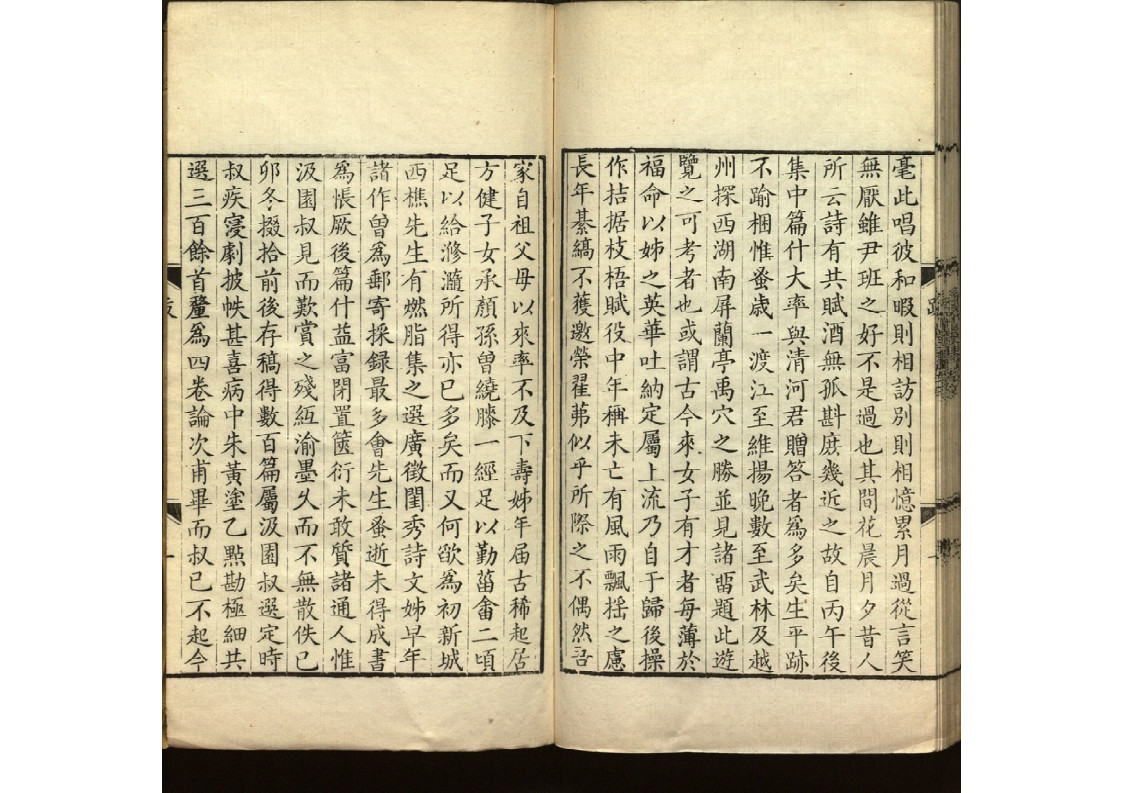 毫此唱彼和暇則相訪別則相憶累月過從言笑
無厭雖尹班之好不是過也其間花晨月夕昔人
所云詩有共賦酒無孤斟庶幾近之故自丙午後
集中篇什大率與清河君贈答者爲多矣生平跡
不踰梱惟蚤歲一渡江至維揚晚數至武林及越
州探西湖南屏蘭亭禹穴之勝並見諸畱題此遊
覽之可考者也或謂古今來女子有才者每薄於
福命以姊之英華吐納定屬上流乃自于歸後操
作拮据枝梧賦役中年稱未亡有風雨飄揺之慮
長年綦縞不獲邀榮翟茀似乎所際之不偶然吾
家自祖父母以來率不及下壽姊年届古稀起居
方健子女承顏孫曾繞膝一經足以勤菑畬二頃
足以給滫瀡所得亦已多矣而又何欲爲初新城
西樵先生有燃脂集之選廣徵閨秀詩文姊早年
諸作曾爲郵寄採録最多會先生蚤逝未得成書
爲悵厥後篇什益富閉置篋衍未敢質諸通人惟
汲園叔見而歎賞之殘縆渝墨久而不無散佚已
卯冬掇拾前後存稿得數百篇屬汲園叔選定時
叔疾寖劇披帙甚喜病中朱黃塗乙點勘極細共
選三百餘首釐爲四卷論次甫畢而叔已不起今